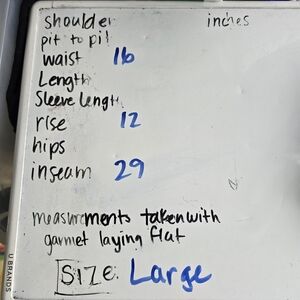 shoulder inches
pit to pit
waist 16
Length
Sleeve Length
rise 12
hips
inseam 29
measurments taken with
garmet laying flat
SIZE: Large
U BRANDS